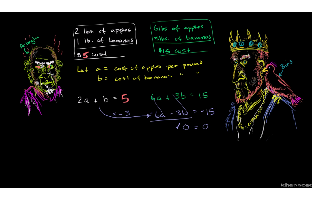 2 lbs of apples
1 lb. of bananas
$5 cost
6 lbs of apples
3 lbs. of bananas
$15 cost
Let a = cost of apples per pound
b = cost of bananas " "
2a + b = 5
6a + 3b = 15
x -3
-6a - 3b = -15
0 = 0